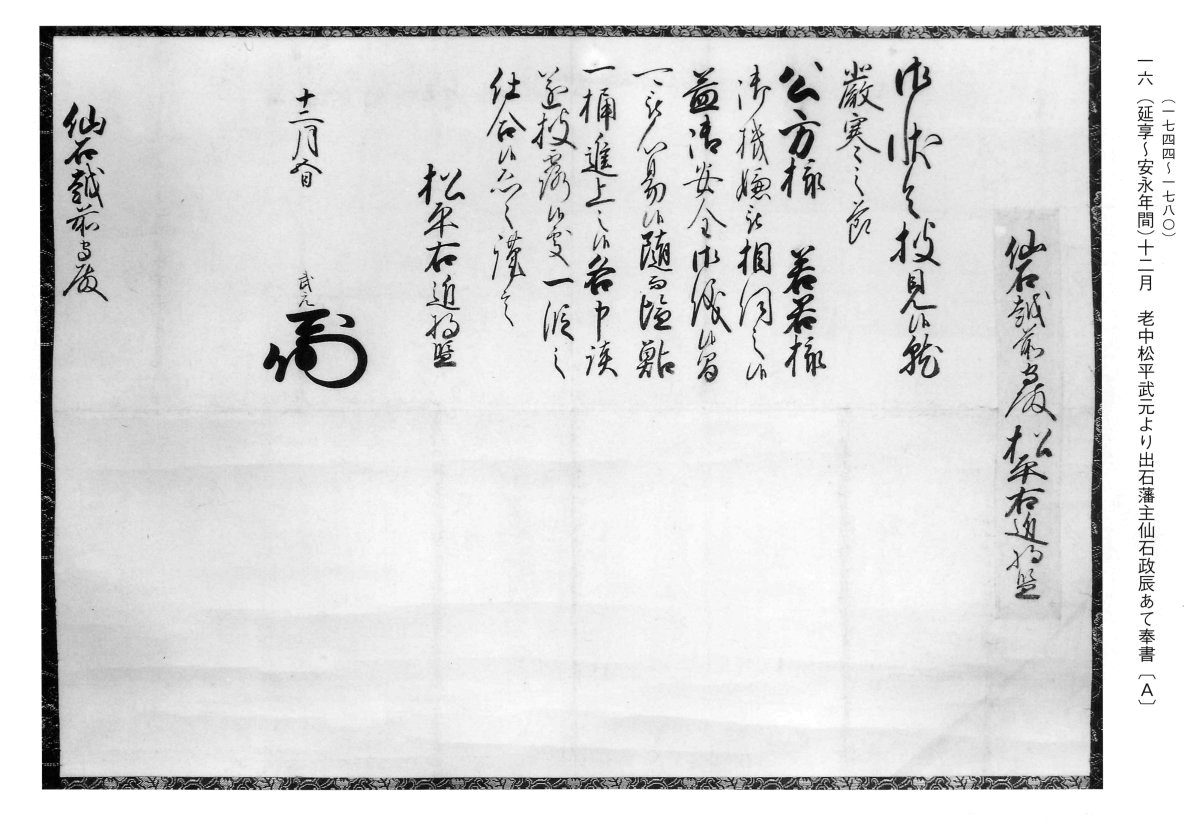 一六 (延享〜安永年間)十二月 老中松平武元より出石藩主仙石政辰あて奉書〔A〕
(一七四四〜一七八〇)
仙石越前守殿 松平右近将監
御状令披見候、就
厳寒之節
公方様 若君様
御機嫌被相伺之候
益御安全御儀候間
可心易候、随而塩鮎
一桶進上之候、各申談
遂披露候処、一段之
仕合候、恐々謹言
松平右近将監
十二月 武元
仙石越前守殿